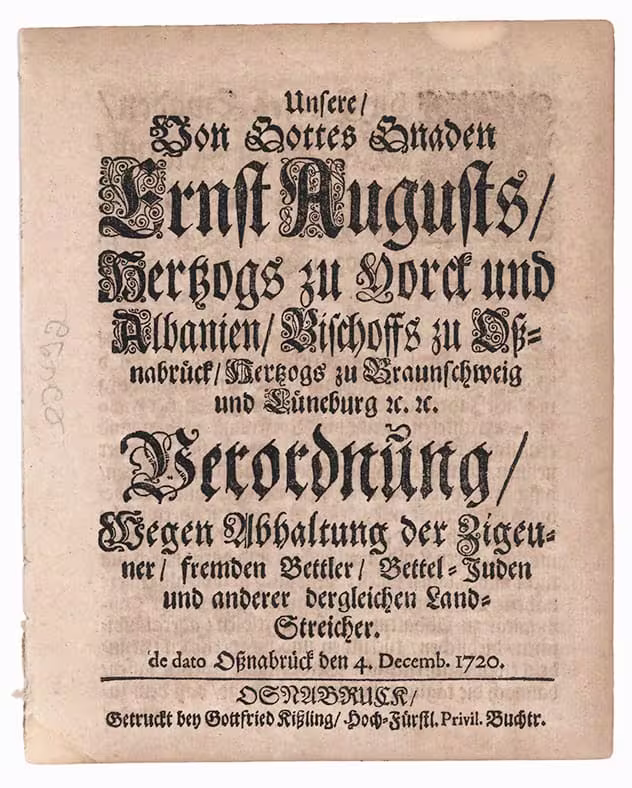 Unsere/
Von Gottes Gnaden
Ernst Augusts/
Hertzogs zu Yorck und
Albanien/ Bischoffs zu Oß-
nabrück/ Hertzogs zu Braunschweig
und Lüneburg ꝛc. ꝛc.
Verordnũng/
Wegen Abhaltung der Zigeu-
ner/ fremden Bettler/ Bettel-Juden
und anderer dergleichen Land-
Streicher.
de dato Oßnabrück den 4. Decemb. 1720.
OSNABRUCK/
Getruckt bey Gottfried Kißling/ Hoch-Fürstl. Privil. Buchtr.